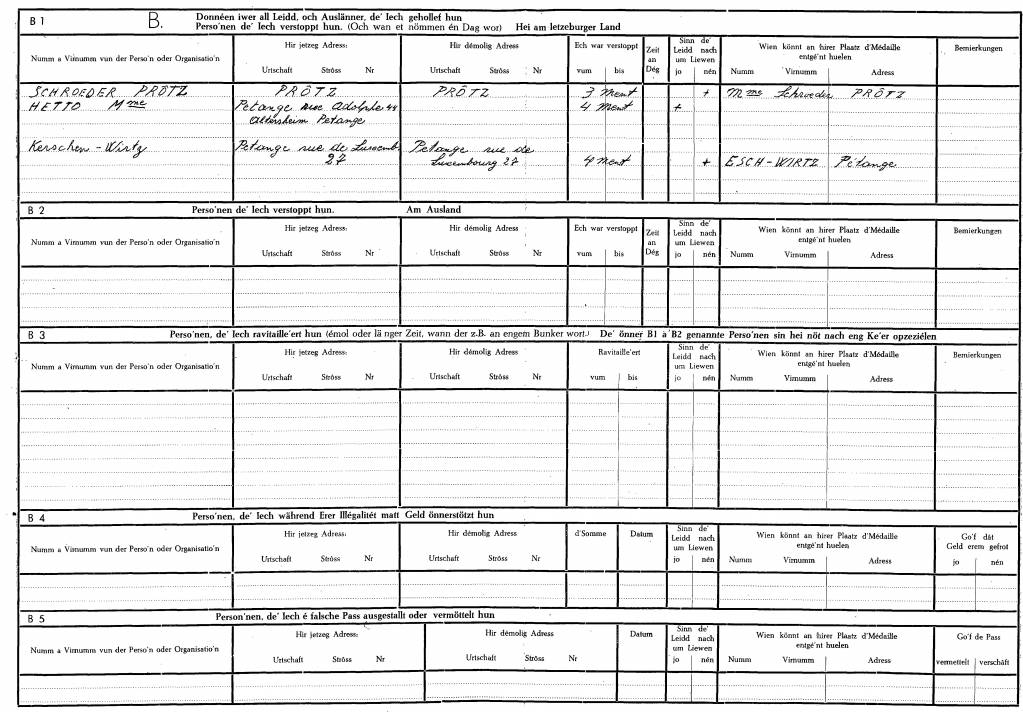 B 1 B. Donnéen iwer all Leidd, och Auslänner, de' Iech gehollef hun
Perso'nen de' Iech verstoppt hun. (Och wan et nömmen én Dag wor) Hei am letzeburger Land
Numm a Virnumm vun der Perso'n oder Organisatio'n
Hir jetzeg Adress:
Urtschaft Ströss Nr
Hir démolig Adress
Urtschaft Ströss Nr
Ech war verstoppt
vum bis
Zeit
an
Dég
Sinn de'
Leidd nach
um Liewen
jo nén
Wien könnt an hirer Plaatz d'Médaille
entgé'nt huelen
Numm Virnumm Adress
Bemierkungen
SCHROEDER PRÖTZ PRÖTZ PRÖTZ 3 Ment + Mme Schroeder PRÖTZ
HETTO Mme Petange rue Adolphe 44 4 Ment +
Altersheim Petange
Kerschen - Wirtz Petange rue de Luxemb. Petange rue de
27 Luxembourg 27 4 Ment + ESCH-WIRTZ Pétange
B 2 Perso'nen de' Iech verstoppt hun. Am Ausland
Numm a Virnumm vun der Perso'n oder Organisatio'n
Hir jetzeg Adress:
Urtschaft Ströss Nr
Hir démolig Adress
Urtschaft Ströss Nr
Ech war verstoppt
vum bis
Zeit
an
Dég
Sinn de'
Leidd nach
um Liewen
jo nén
Wien könnt an hirer Plaatz d'Médaille
entgé'nt huelen
Numm Virnumm Adress
Bemierkungen
B 3 Perso'nen, de' Iech ravitaille'ert hun (émol oder länger Zeit, wann der z.B. an engem Bunker wort.) De' önner B1 a' B2 genannte Perso'nen sin hei nöt nach eng Ke'er opzeziélen
Numm a Virnumm vun der Perso'n oder Organisatio'n
Hir jetzeg Adress:
Urtschaft Ströss Nr
Hir démolig Adress
Urtschaft Ströss Nr
Ravitaille'ert
vum bis
Sinn de'
Leidd nach
um Liewen
jo nén
Wien könnt an hirer Plaatz d'Médaille
entgé'nt huelen
Numm Virnumm Adress
Bemierkungen
B 4 Perso'nen, de' Iech während Erer Illégalitét matt Geld önnerstötzt hun
Numm a Virnumm vun der Perso'n oder Organisatio'n
Hir jetzeg Adress:
Urtschaft Ströss Nr
Hir démolig Adress
Urtschaft Ströss Nr
d'Somme
Datum
Sinn de'
Leidd nach
um Liewen
jo nén
Wien könnt an hirer Plaatz d'Médaille
entgé'nt huelen
Numm Virnumm Adress
Go'f dát
Geld erem gefrot
jo nén
B 5 Person'nen, de' Iech é falsche Pass ausgestallt oder vermöttelt hun
Numm a Virnumm vun der Perso'n oder Organisatio'n
Hir jetzeg Adress:
Urtschaft Ströss Nr
Hir démolig Adress
Urtschaft Ströss Nr
Datum
Sinn de'
Leidd nach
um Liewen
jo nén
Wien könnt an hirer Plaatz d'Médaille
entgé'nt huelen
Numm Virnumm Adress
Go'f de Pass
vermettelt verschâft